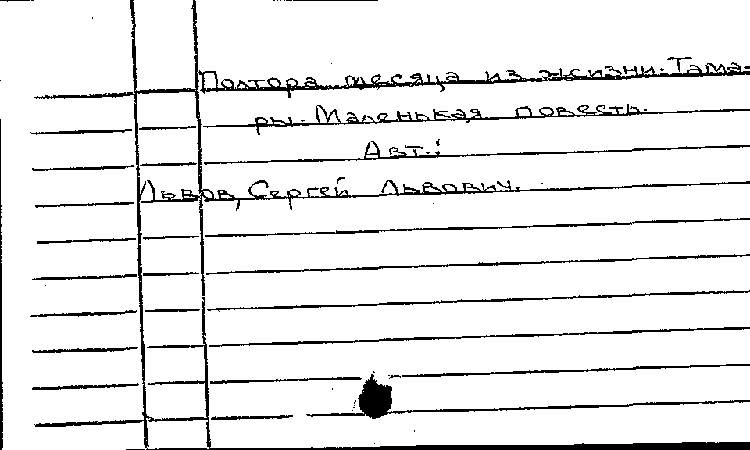 Полтора месяца из жизни Тама-
ры. Маленькая повесть.
Авт.:
Львов, Сергей Львович.